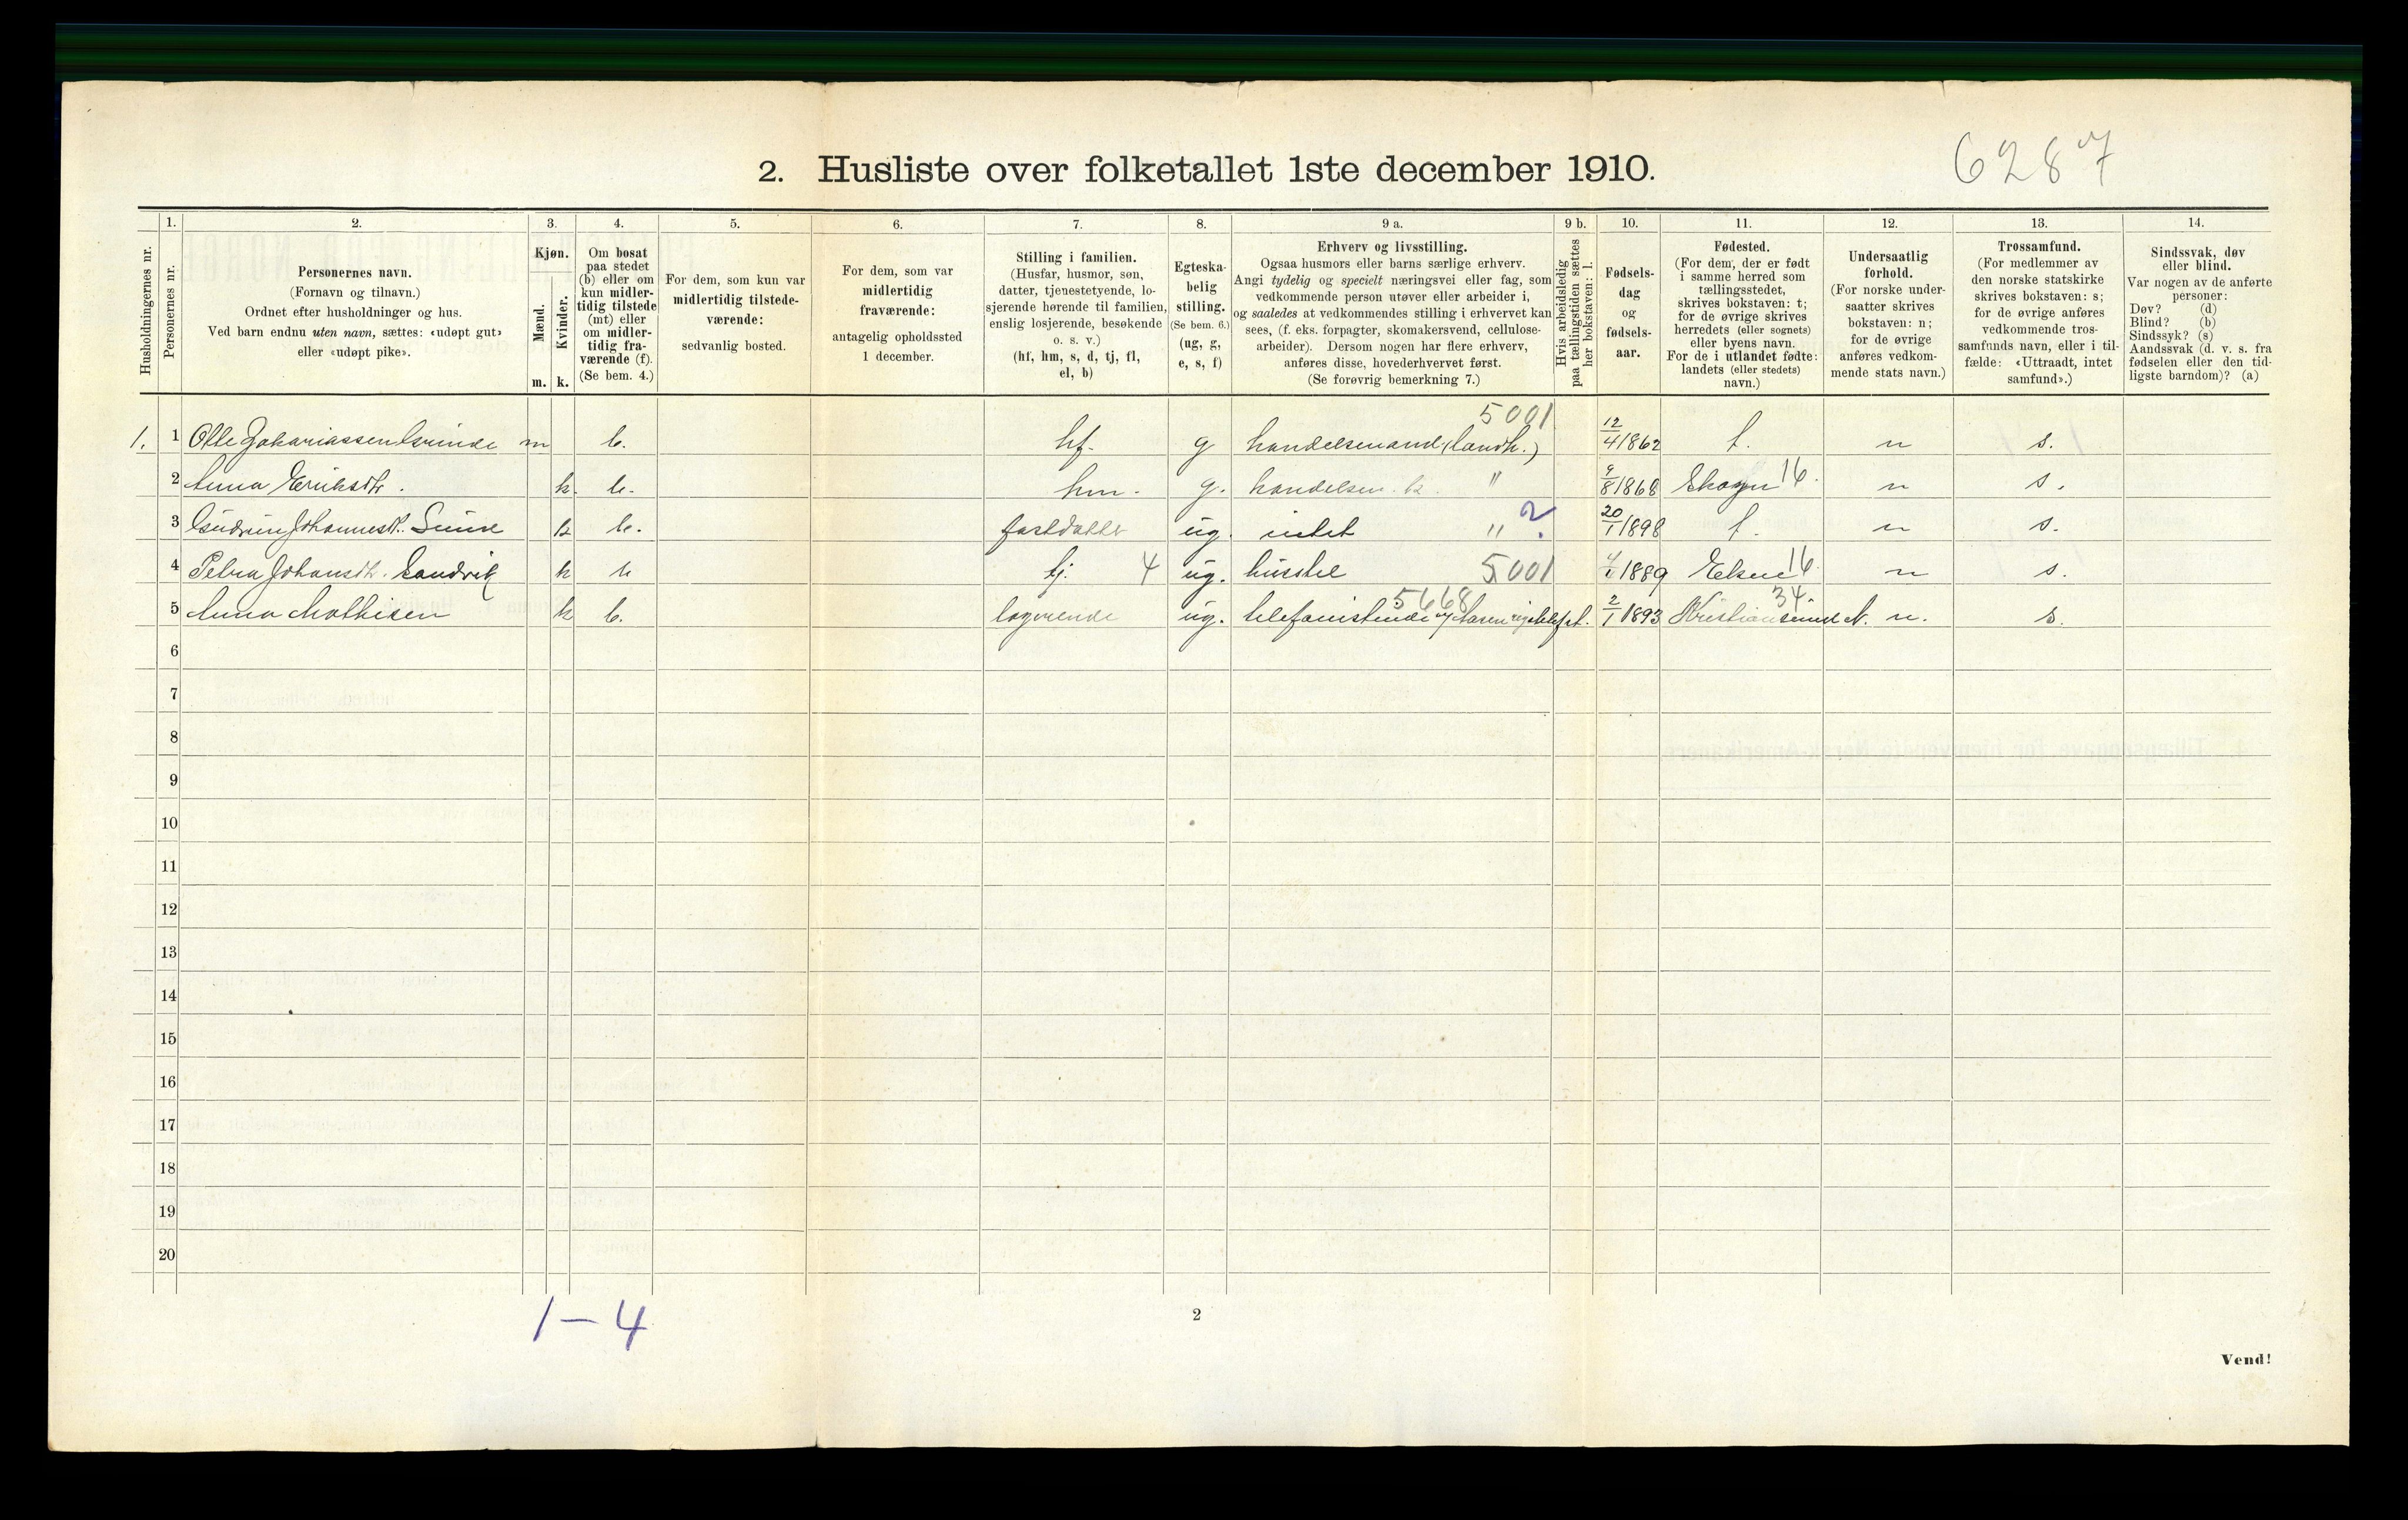 6287
2. Husliste over folketallet 1ste december 1910.
Husholdningernes nr.
1.
Personernes nr.
2.
Personernes navn.
(Fornavn og tilnavn.)
Ordnet efter husholdninger og hus.
Ved barn endnu uten navn, sættes: «udøpt gut»
eller «udøpt pike».
3.
Kjøn.
Mænd.
Kvinder.
m. k.
4.
Om bosat
paa stedet
(b) eller om
kun midler-
tidig tilstede
(mt) eller
om midler-
tidig fra-
værende (f).
(Se bem. 4.)
5.
For dem, som kun var
midlertidig tilstede-
værende:
sedvanlig bosted.
6.
For dem, som var
midlertidig
fraværende:
antagelig opholdssted
1 december.
7.
Stilling i familien.
(Husfar, husmor, søn,
datter, tjenestetyende, lo-
sjerende hørende til familien,
enslig losjerende, besøkende
o. s. v.)
(hf, hm, s, d, tj, fl,
el, b)
8.
Egteska-
belig
stilling.
(Se bem. 6.)
(ug, g,
e, s, f)
9 a.
Erhverv og livsstilling.
Ogsaa husmors eller barns særlige erhverv.
Angi tydelig og specielt næringsvei eller fag, som
vedkommende person utøver eller arbeider i,
og saaledes at vedkommendes stilling i erhvervet kan
sees, (f. eks. forpagter, skomakersvend, cellulose-
arbeider). Dersom nogen har flere erhverv,
anføres disse, hovederhvervet først.
(Se forøvrig bemerkning 7.)
9 b.
Hvis arbeidsledig
paa tællingstiden sættes
her bokstaven: l.
10.
Fødsels-
dag
og
fødsels-
aar.
11.
Fødested.
(For dem, der er født
i samme herred som
tællingsstedet,
skrives bokstaven: t;
for de øvrige skrives
herredets (eller sognets)
eller byens navn.
For de i utlandet fødte:
landets (eller stedets)
navn.)
12.
Undersaatlig
forhold.
(For norske under-
saatter skrives
bokstaven: n;
for de øvrige
anføres vedkom-
mende stats navn.)
13.
Trossamfund.
(For medlemmer av
den norske statskirke
skrives bokstaven: s;
for de øvrige anføres
vedkommende tros-
samfunds navn, eller i til-
fælde: «Uttraadt, intet
samfund».)
14.
Sindssvak, døv
eller blind.
Var nogen av de anførte
personer:
Døv? (d)
Blind? (b)
Sindssyk? (s)
Aandssvak (d. v. s. fra
fødselen eller den tid-
ligste barndom)? (a)
5001
1. 1 m b. hf. g handelsmand (landh.) 12/4 1862 t. n s.
2 Anna Eriksdtr. k. b. hm. g. handelsm. k. " 9/8 1868 Skogn 16. n s.
3 Gudrun Johannesdtr. k b. fostdatter ug. intet " 2 20/1 1898 t. n s.
4 Petra Johansdtr. Sandvik k b tj. 4 ug. husstel 5001 1889 16 n s.
5668 34.
5 Anna Mathisen k b. logerende ug. telefonistinde 2/1 1893 Kristiansund N. n. s.
6
7
8
9
10
11
12
13
14
15
16
17
18
19
20
1–4
2
Vend!